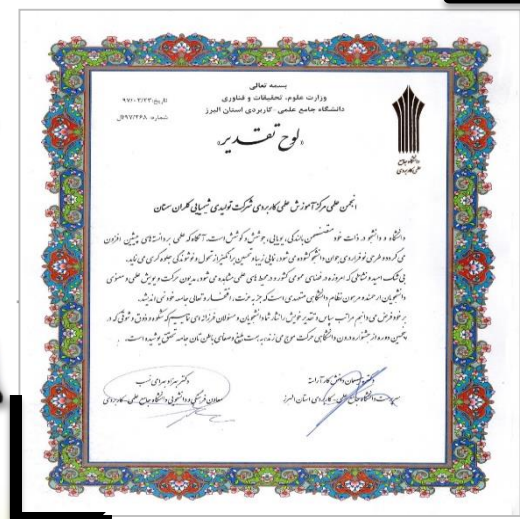 بسمه تعالی
وزارت علوم، تحقیقات و فناوری
دانشگاه جامع علمی - کاربردی استان البرز
تاریخ: ۹۷/۰۳/۲۳
شماره: ۶۹۷/۳۶۸/ل
«لوح تقدیر»
دانشگاه جامع
علمی کاربردی
انجمن علمی مرکز آموزش علمی کاربردی شرکت تولیدی شیمیایی کلران سمنان
دانشگاه و دانشجو در ذات خود متضمن بالندگی، پویایی، جوشش و کوشش است، آنگاه که علمی بر دانسته‌های پیشین افزون
می‌گردد و طرحی نو فرا روی جوان دانشجو گشوده می‌شود، نمایی زیبا و تحسین برانگیز از تحول و نو شوندگی جلوه گری می‌نماید.
بی شک، امید و نشاطی که امروزه در فضای عمومی کشور و در محیط های علمی مشاهده می شود، مدیون حرکت و پویش علمی و معنوی
دانشجویان ارجمند و مرهون نظام دانشگاهی متعهدی است که جز به عزت، افتخار و تعالی جامعه خود نمی اندیشد.
بر خود فرض می دانیم مراتب سپاس و تقدیر خویش را نثار شما دانشجویان و مسئولان فرزانه ای نماییم که شکوه و ذوق و شوقی که در
پنجمین دوره از جشنواره درون دانشگاهی حرکت موج می زند، به همت بلیغ و صفای باطن تان جامه تحقق پوشیده است.
سرپرست دانشگاه جامع علمی - کاربردی استان البرز
دکتر بهزاد بهرامی نسب
معاون فرهنگی و دانشجویی دانشگاه جامع علمی - کاربردی